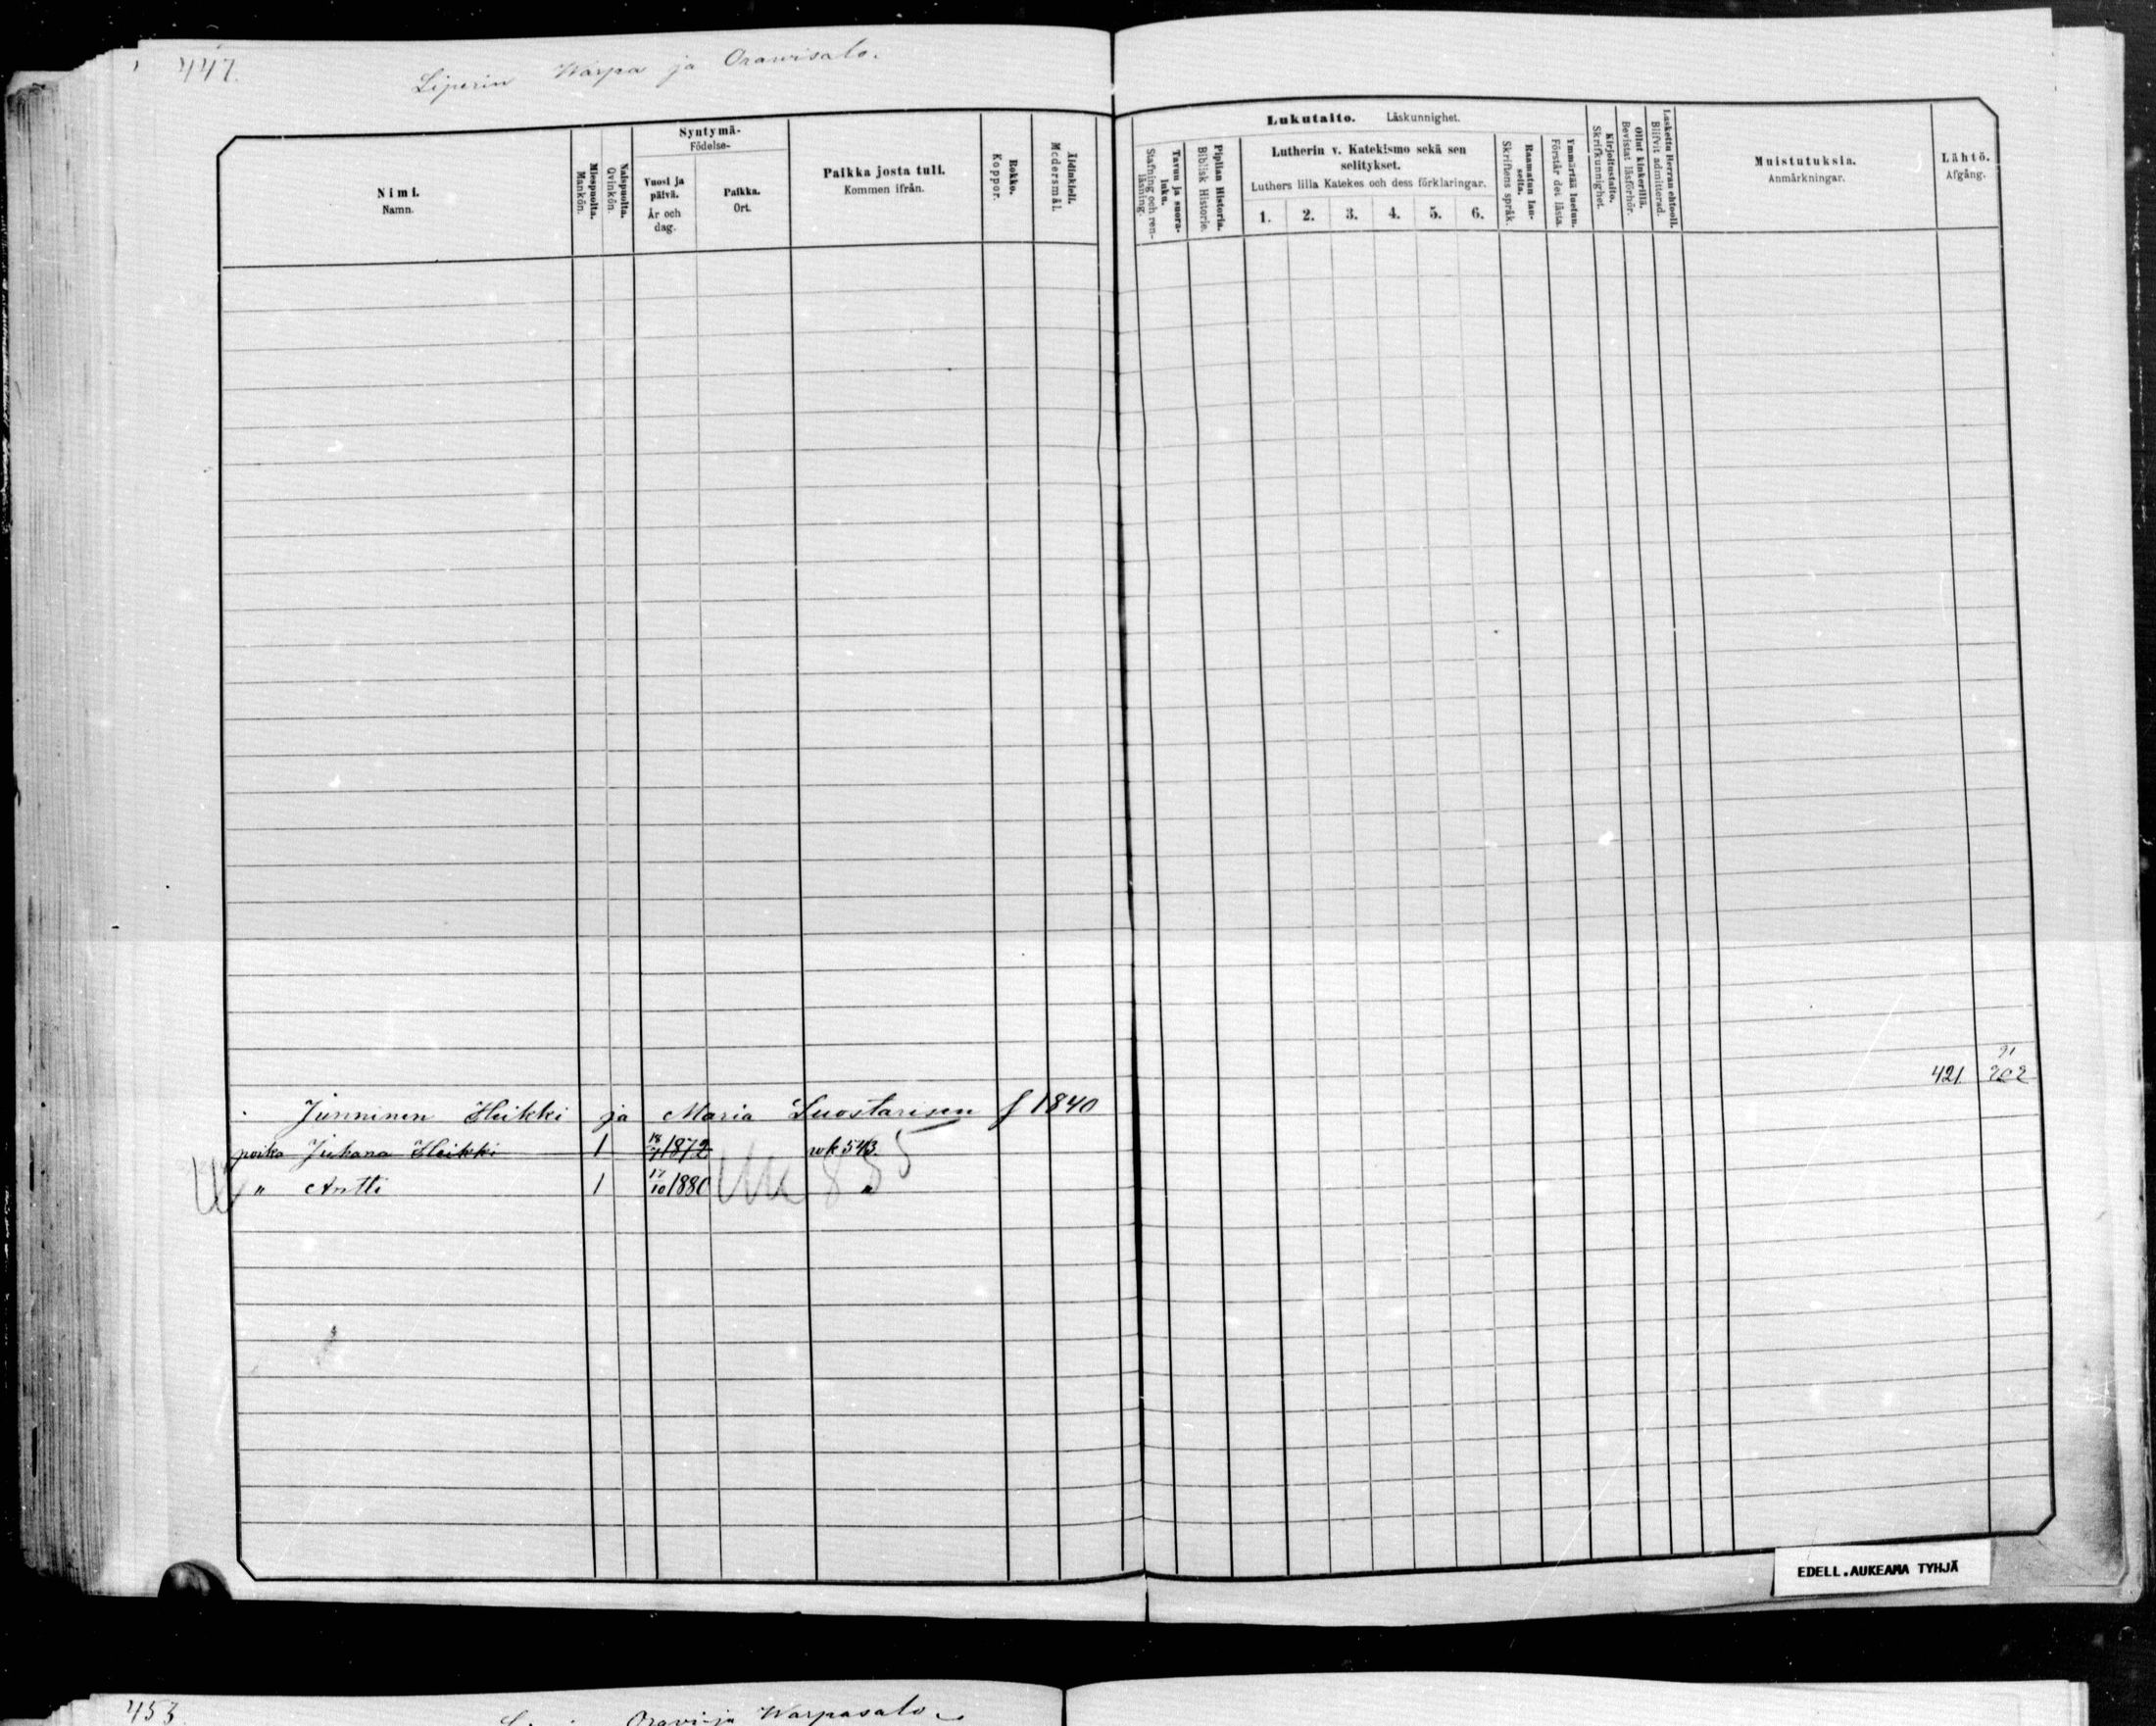 447.
Liperin Warpa ja Orawisalo.
Nimi.
Namn.
Miespuolta.
Mankön.
Naispuolta.
Qvinkön.
Syntymä-
Födelse-
Vuosi ja päivä.
År och dag.
Paikka.
Ort.
Paikka josta tuli.
Kommen ifrån.
Rokko.
Koppor.
Äidinkieli.
Modersmål.
Lukutaito. Läskunnighet.
Tavuu ja suora-luku.
Stafning och ren-läsning.
Piplian Historia.
Biblisk Historie.
Lutherin v. Katekismo sekä sen
selitykset.
Luthers lilla Katekes och dess förklaringar.
1. 2. 3. 4. 5. 6.
Raamatun lau-seita.
Skriftens språk.
Ymmärtää luetun.
Förstår det lästa.
Kirjoitustaito.
Skrifkunnighet.
Ollut kinkerillä.
Bevistat läsförhör.
Laskettu Herran ehtooll.
Blifvit admitterad.
Muistutuksia.
Anmärkningar.
Lähtö.
Afgång.
91
421. 202
Junninen Heikki ja Maria Luostarisen f 1840
poika Juhana Heikki 1 1872 wk 543.
" Antti 1 17/10 1880 "
885
EDELL.AUKEAMA TYHJÄ
453
Oravi ja Warpasalo